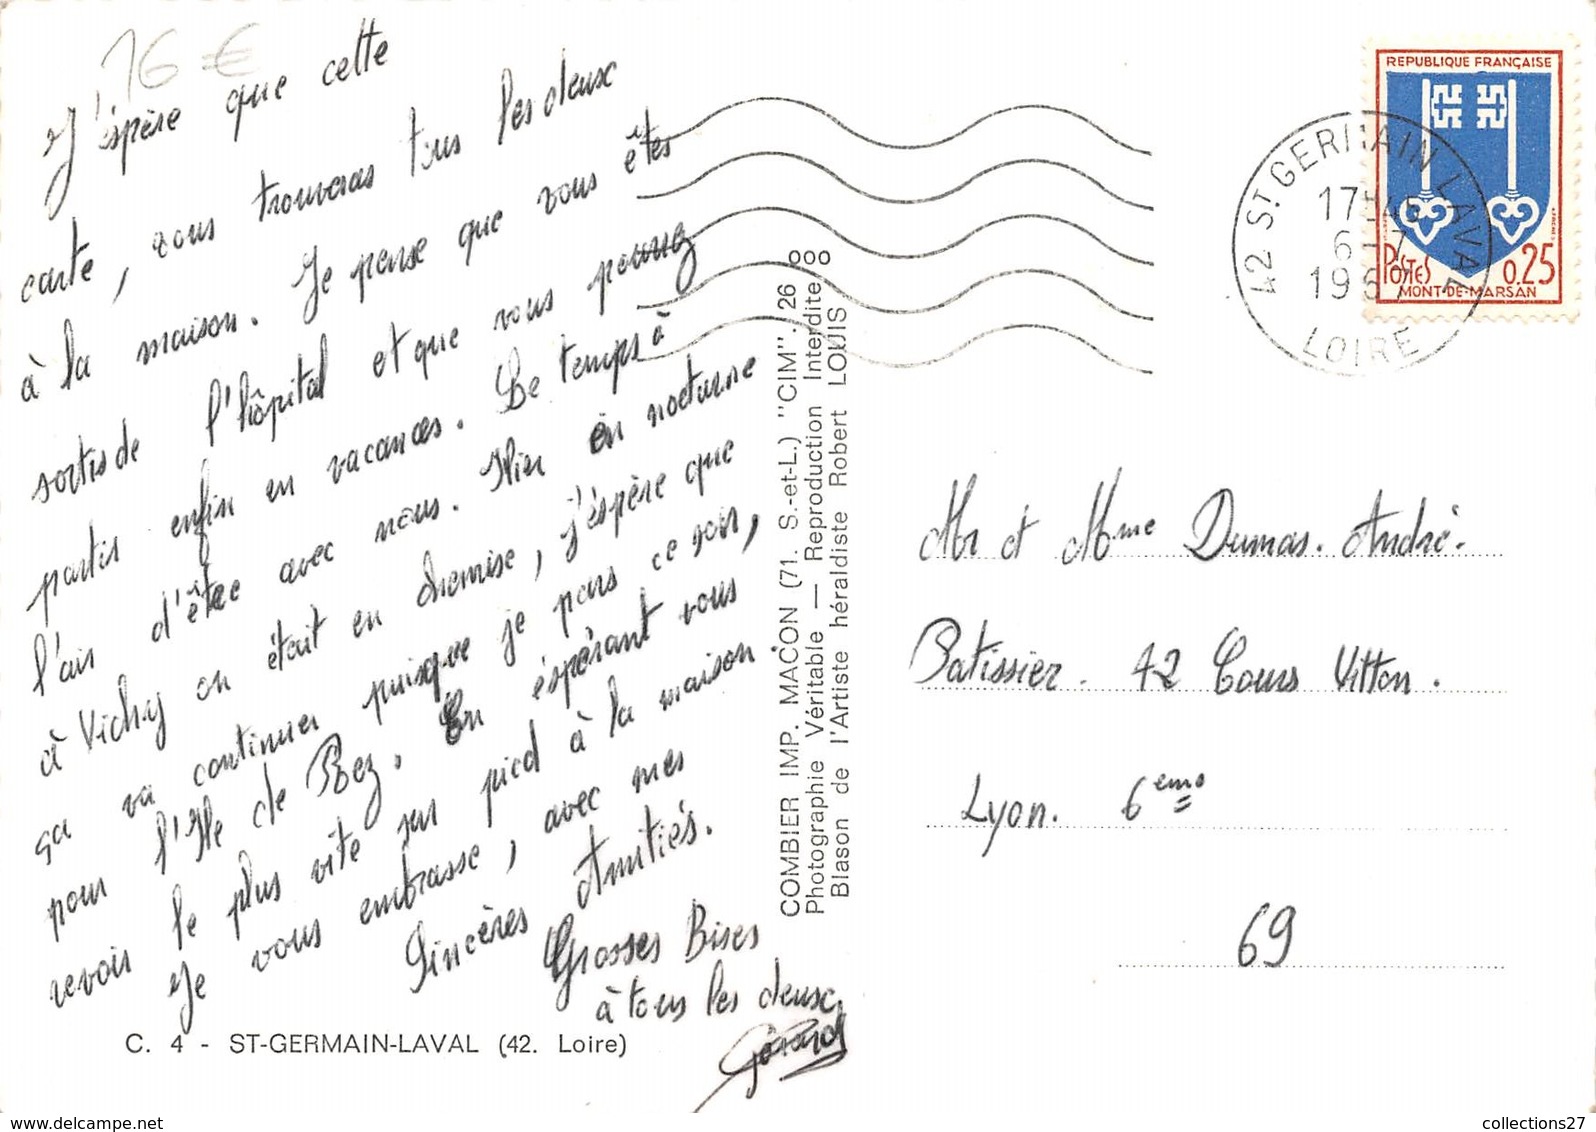 16 €
J'éspère que cette
carte, vous trouveras tous les deux
à la maison. Je pense que vous êtes
sortis de l'hôpital et que vous pouvez
partir enfin en vacances. Le temps à
l'air d'être avec nous. Hier en nocturne
à Vichy on était en chemise, j'éspère que
ça va continuer puisque je pars ce soir,
pour l'Ile de Rez. En éspérant vous
revoir le plus vite sur pied à la maison.
Je vous embrasse, avec mes
Sincères Amitiés.
Grosses Bises
à tous les deux
Gérard
C. 4 - ST-GERMAIN-LAVAL (42. Loire)
COMBIER IMP. MACON (71. S.-et-L.) "CIM". 26 ooo
Photographie Véritable — Reproduction Interdite
Blason de l'Artiste héraldiste Robert LOUIS
REPUBLIQUE FRANÇAISE
POSTES 0.25
MONT-DE-MARSAN
42 ST. GERMAIN LAVAL
17H45
6-7
1967
LOIRE
Mr et Mme Dumas. André.
Patissier. 42 Cours Vitton.
Lyon. 6eme
69
collections27